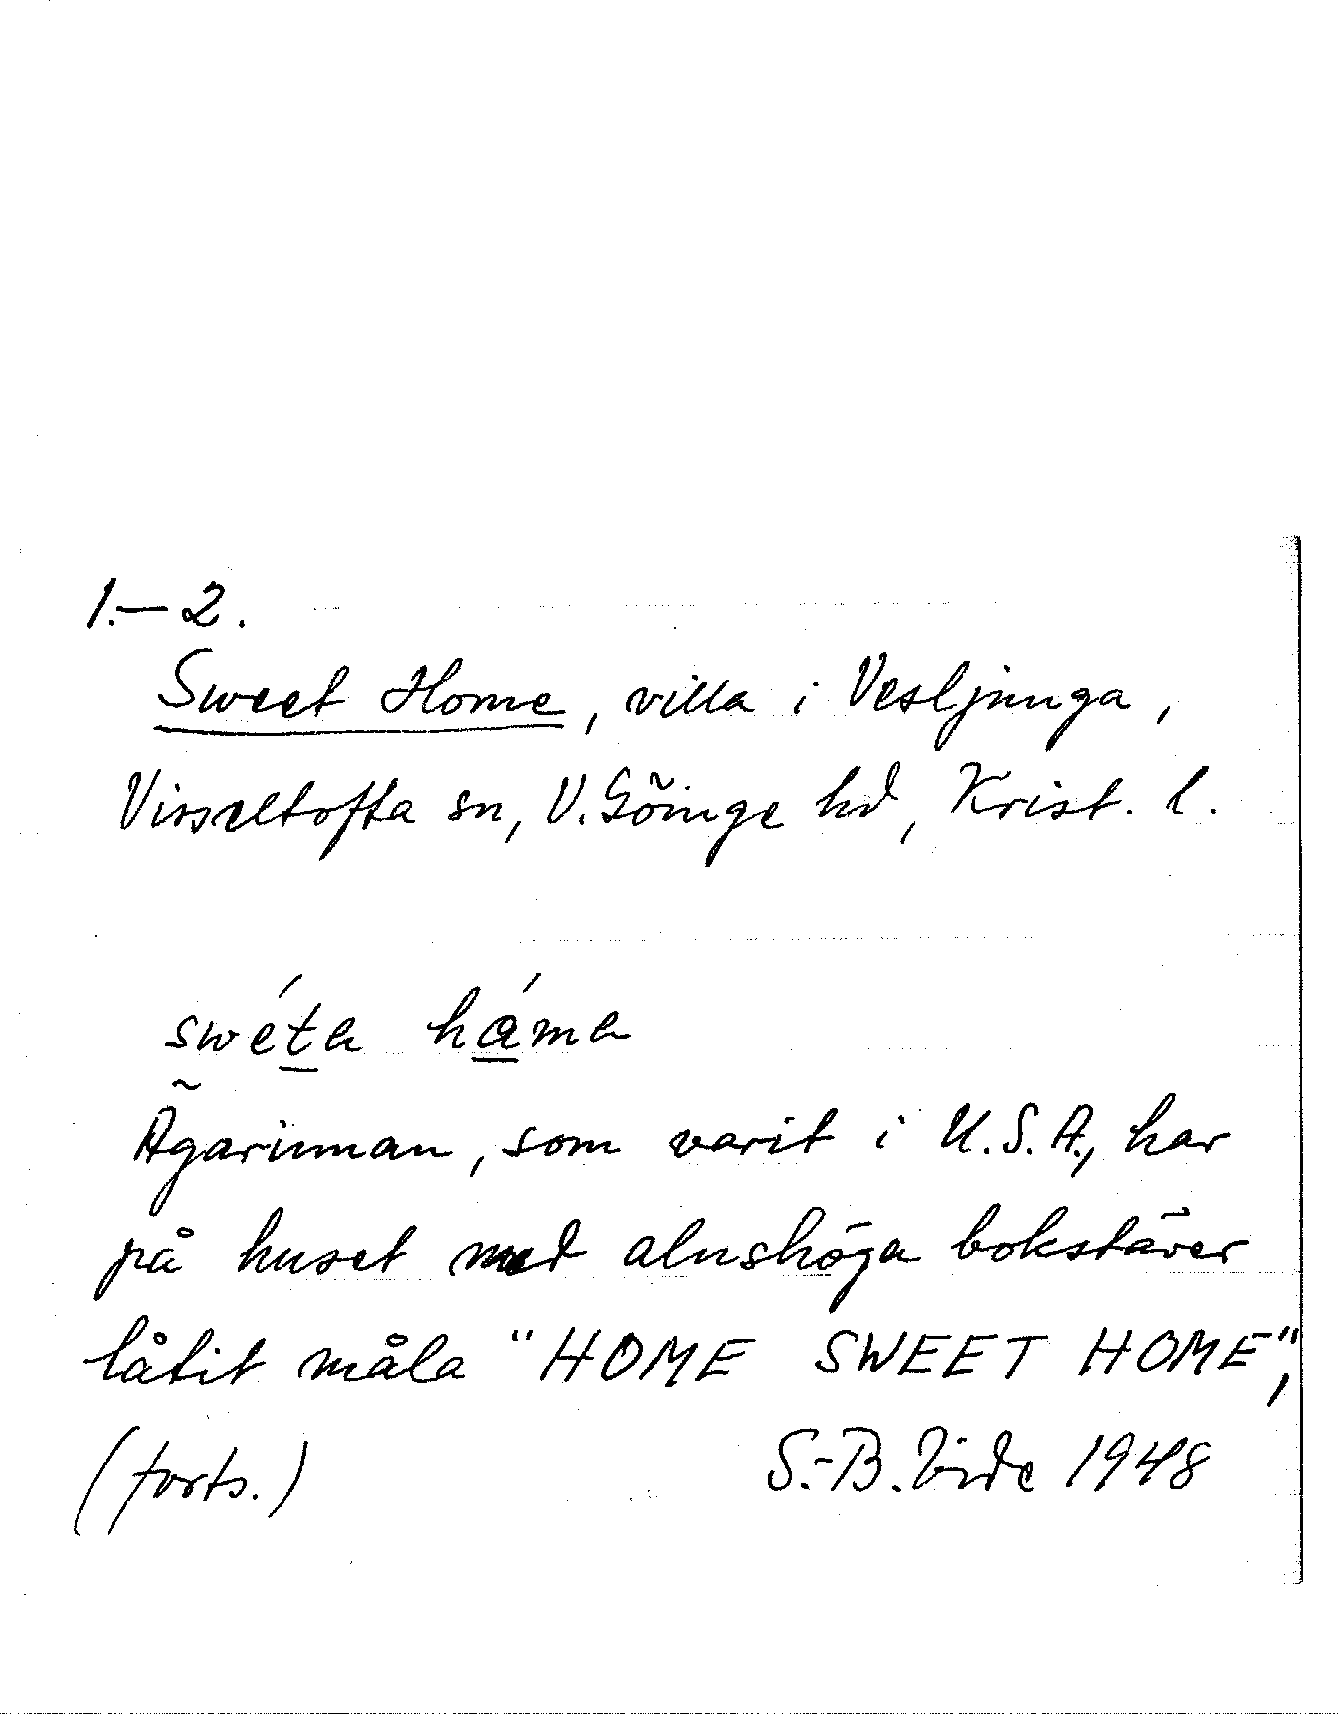 1.–2.
Sweet Home, villa i Vesljunga,
Visseltofta sn, V. Göinge hd, Krist. l.
swéta háma
Ägarinnan, som varit i U.S.A., har
på huset med alnshöga bokstäver
låtit måla "HOME SWEET HOME",
(forts.) S.-B. Vide 1948